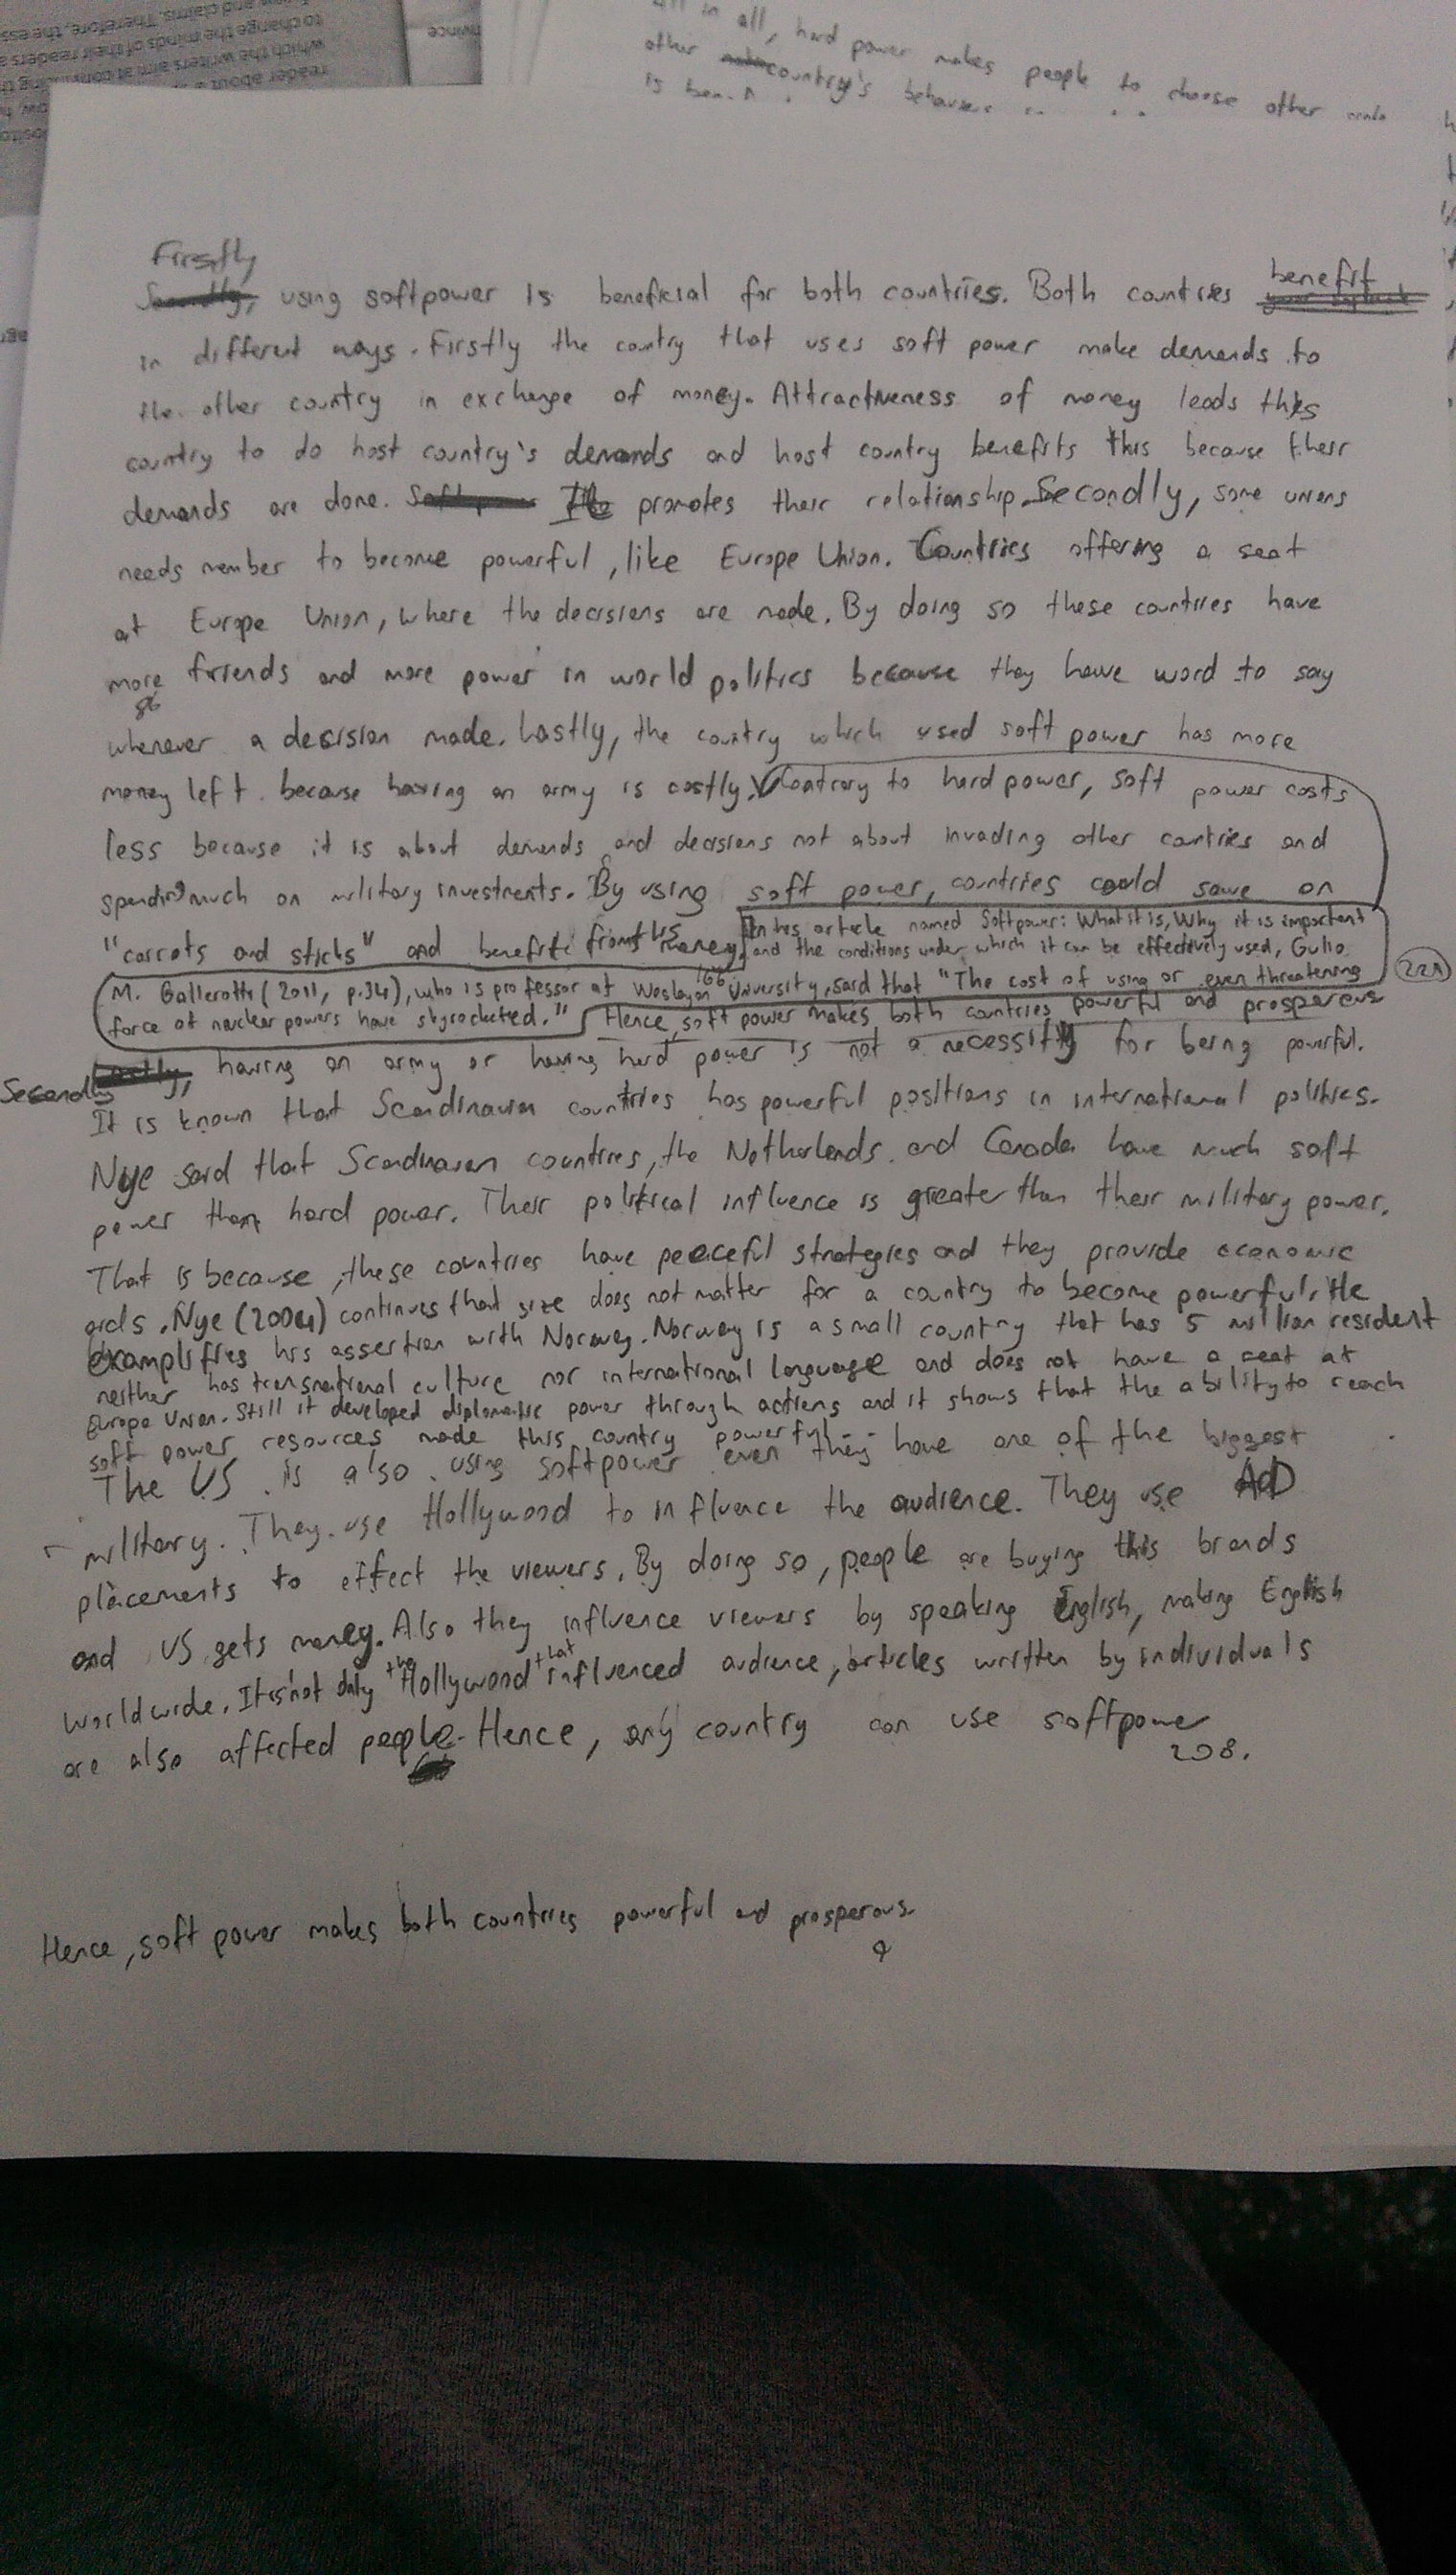 all in all, hard power makes people to choose other
other country's behaviors
is
Firstly
Secondly, using softpower is beneficial for both countries. Both countries benefit
in different ways. Firstly the country that uses soft power make demands to
the other country in exchange of money. Attractiveness of money leads this
country to do host country's demands and host country benefits this because their
demands are done. Soft power It promotes their relationship. Secondly, some unions
needs member to become powerful, like Europe Union. Countries offering a seat
at Europe Union, where the decisions are made. By doing so these countries have
more friends and more power in world politics because they have word to say
86
whenever a decision made. Lastly, the country which used soft power has more
money left. because having an army is costly. Contrary to hard power, soft power costs
less because it is about demands and decisions not about invading other contries and
spending much on military investments. By using soft power, countries could save on
"carrots and sticks" and benefit from this money.
166
In his article named Softpower: What it is, Why it is important
and the conditions under which it can be effectively used, Gulio
M. Gallerotti (2011, p.34), who is professor at Wesleyan University, said that "The cost of using or even threatening
force at nuclear powers have skyrocketed." Hence, soft power makes both countries powerful and prosperous
221
Secondly Lastly, having an army or having hard power is not a necessity for being powerful.
It is known that Scandinavian countries has powerful positions in international politics.
Nye said that Scandinavian countries, the Netherlands and Canada have much soft
power than hard power. Their political influence is greater than their military power.
That is because, these countries have peaceful strategies and they provide economic
aids. Nye (2004) continues that size does not matter for a country to become powerful. He
examplifies his assertion with Norway. Norway is a small country that has 5 million resident
neither has transnational culture nor international language and does not have a seat at
Europe Union. Still it developed diplomatic power through actions and it shows that the ability to reach
soft power resources made this country powerful.
The US is also using softpower even they have one of the biggest
military. They use Hollywood to influence the audience. They use AD
placements to effect the viewers. By doing so, people are buying this brands
and US gets money. Also they influence viewers by speaking English, making English
worldwide. It is not only the Hollywood that influenced audience, articles written by individuals
are also affected people. Hence, any country can use softpower
208.
Hence, soft power makes both countries powerful and prosperous